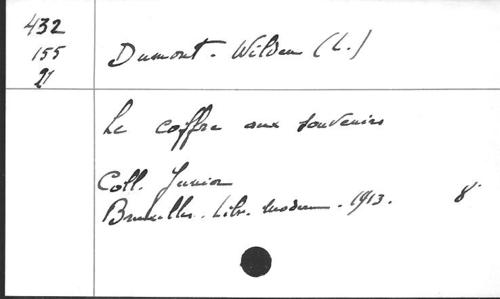 432
155
21
Dumont-Wilden (L.)
Le coffre aux souvenirs
Coll. Junior
Bruxelles. Libr. moderne. 1913. 8°